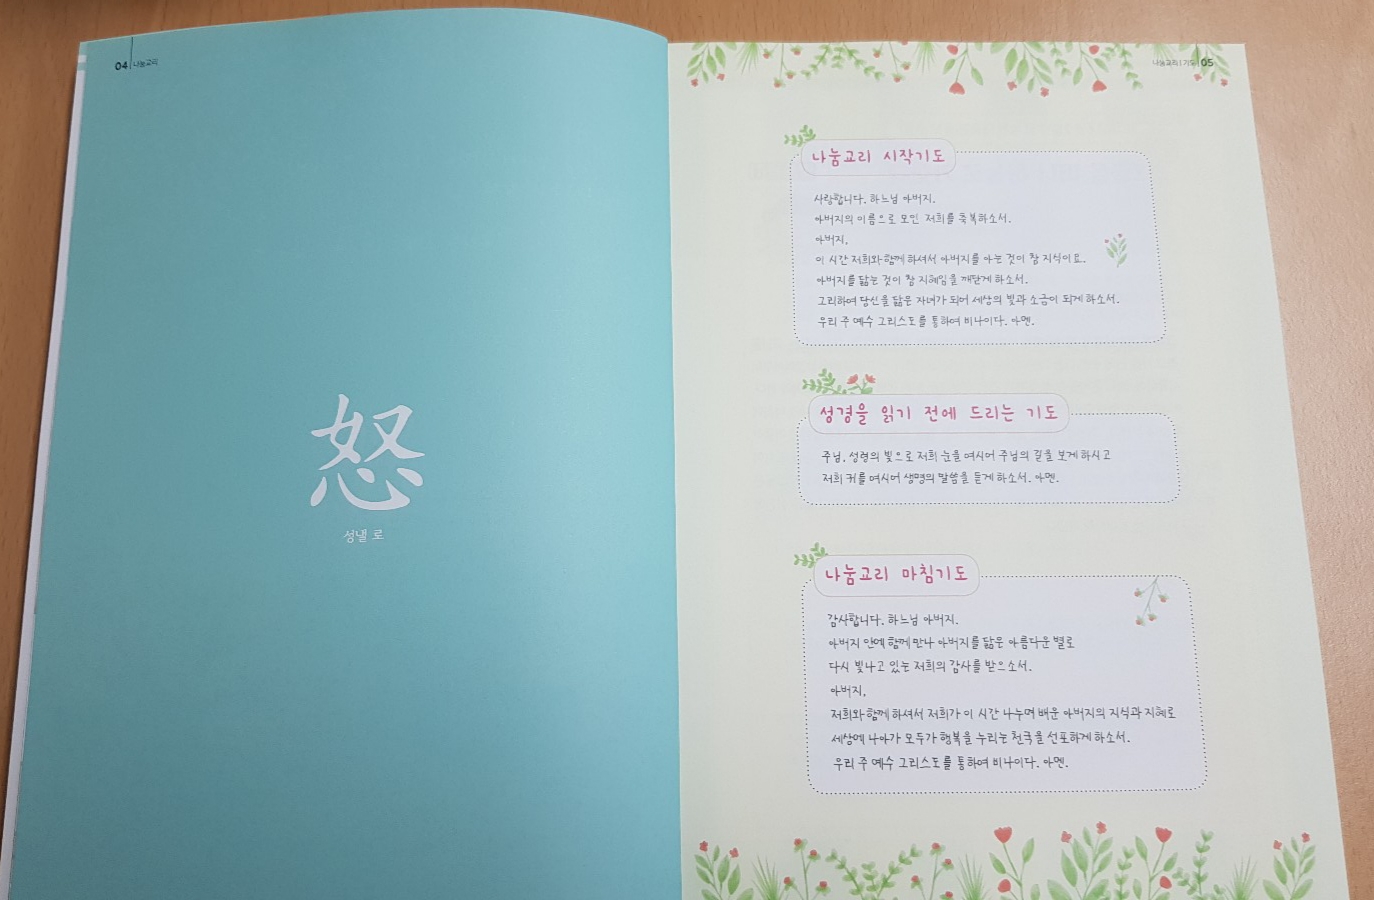 04 나눔교리
怒
성낼 로
나눔교리 | 기도 05
나눔교리 시작기도
사랑합니다. 하느님 아버지.
아버지의 이름으로 모인 저희를 축복하소서.
아버지,
이 시간 저희와 함께 하셔서 아버지를 아는 것이 참 지식이요.
아버지를 닮는 것이 참 지혜임을 깨닫게 하소서.
그리하여 당신을 닮은 자녀가 되어 세상의 빛과 소금이 되게 하소서.
우리 주 예수 그리스도를 통하여 비나이다. 아멘.
성경을 읽기 전에 드리는 기도
주님, 성령의 빛으로 저희 눈을 여시어 주님의 길을 보게 하시고
저희 귀를 여시어 생명의 말씀을 듣게 하소서. 아멘.
나눔교리 마침기도
감사합니다. 하느님 아버지.
아버지 안에 함께 만나 아버지를 닮은 아름다운 별로
다시 빛나고 있는 저희의 감사를 받으소서.
아버지,
저희와 함께 하셔서 저희가 이 시간 나누며 배운 아버지의 지식과 지혜로
세상에 나아가 모두가 행복을 누리는 천국을 선포하게 하소서.
우리 주 예수 그리스도를 통하여 비나이다. 아멘.